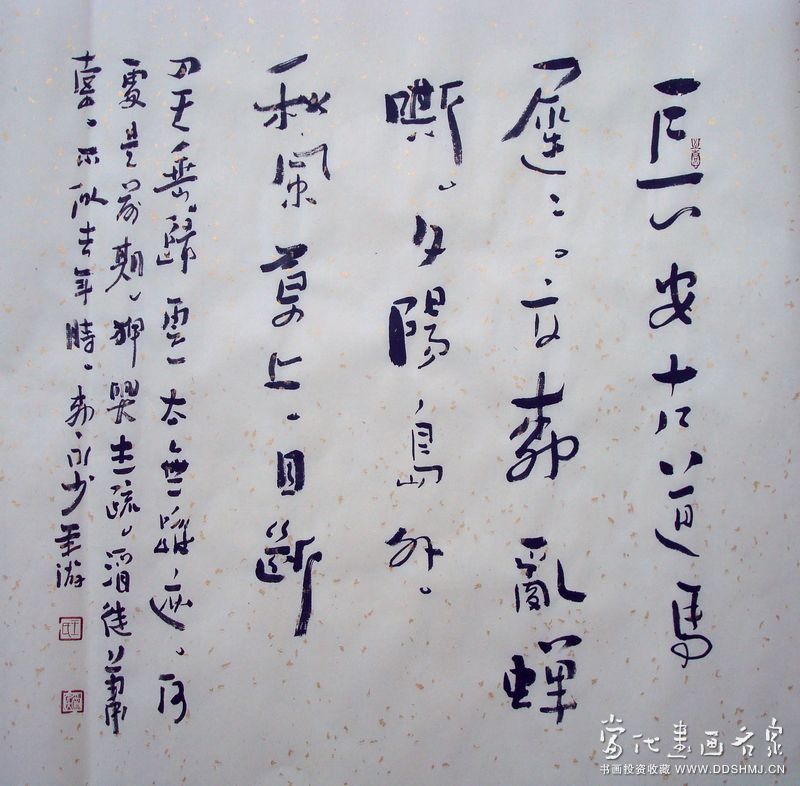 長安古道馬
遲遲。高柳亂蝉
嘶。夕陽島外。
秋風原上。目斷
四天垂。歸雲一去無蹤迹。何
處是前期。狎興生疏。酒徒蕭
索。不似去年時。柳永少年游
當代書画名家
书画投资收藏 WWW.DDSHMJ.CN